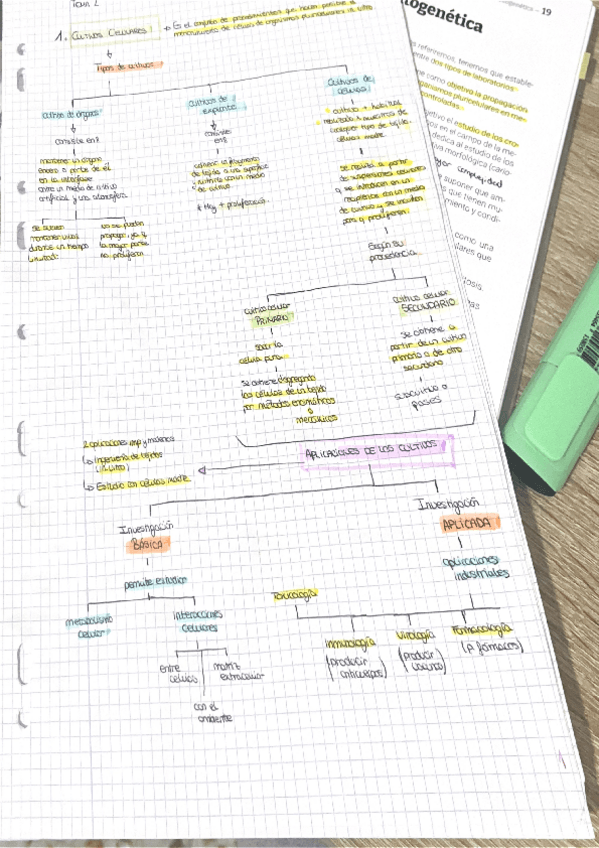 Tema 2
1. CULTIVOS CELULARES: → Es el conjunto de procedimientos que hacen posible el
mantenimiento de células de organismos pluricelulares in vitro
Tipos de cultivos:
cultivo de órganos:
consiste en:
mantener un órgano
entero o parte de él
en la interfase
entre un medio de cultivo
artificial y una atmósfera
se suelen
mantener vivos
durante un tiempo
limitado
no se pueden
propagar, ya q
la mayor parte
no proliferan
cultivos de
explante
consiste
en:
de tejido a una superficie
y nutrirlo con un medio
de cultivo
* Hay + proliferación
Cultivos de
células:
cultivo + habitual
realizado a
cualquier tipo de tejido,
células madre
se realiza a partir
de suspensiones celulares
q se introducen en un
recipiente con un medio
de cultivo y se incuban
para q proliferen.
Según su
procedencia
cultivo celular
PRIMARIO
sería
célula pura
se obtiene disgregando
las células de un tejido
por métodos enzimáticos
o
mecánicos
cultivo celular
SECUNDARIO
se obtiene a
partir de un cultivo
primario o de otro
secundario
subcultivo o
pases
APLICACIONES DE LOS CULTIVOS
2 aplicaciones imp y modernas
↳ Ingeniería de tejidos
(in vitro)
↳ Estudio con células madre
Investigación
BÁSICA
permite estudiar
metabolismo
celular
interacciones
celulares
entre
células
matriz
extracelular
con el
ambiente
Investigación
APLICADA
aplicaciones
industriales
Toxicología
Inmunología
(producir
anticuerpos)
Virología
(producir
vacunas)
Farmacología
(p. fármacos)
1
itogenética
19
referiremos, tenemos que estable-
entre dos tipos de laboratorios:
como objetivo la propagación
organismos pluricelulares en me-
controladas.
etivo el estudio de los cro-
en el campo de la me-
dedica al estudio de los
va morfológica (cario-
yor complejidad
suponer que am-
que tienen mu-
miento y cordi-
como una
lares que
tosis,
das